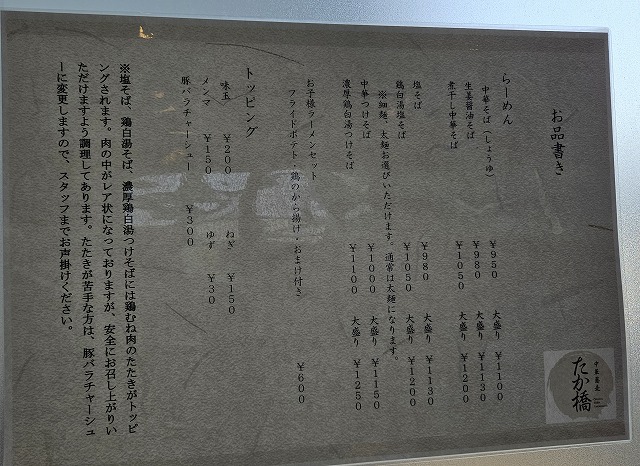 お品書き
らーめん
中華そば（しょうゆ） ￥950 大盛り ￥1100
生姜醤油そば ￥980 大盛り ￥1130
煮干し中華そば ￥1050 大盛り ￥1200
塩そば ￥980 大盛り ￥1130
鶏白湯塩そば ￥1050 大盛り ￥1200
※細麺、太麺お選びいただけます。通常は太麺になります。
中華つけそば ￥1000 大盛り ￥1150
濃厚鶏白湯つけそば ￥1100 大盛り ￥1250
お子様ラーメンセット
フライドポテト・鶏のから揚げ・おまけ付き ￥600
トッピング
味玉 ￥200 ねぎ ￥150
メンマ ￥150 ゆず ￥30
豚バラチャーシュー ￥300
※塩そば、鶏白湯そば、濃厚鶏白湯つけそばには鶏むね肉のたたきがトッピ
ングされます。肉の中がレア状になっておりますが、安全にお召し上がりい
ただけますよう調理してあります。たたきが苦手な方は、豚バラチャーシュ
ーに変更しますので、スタッフまでお声掛けください。
中華蕎麦
たか橋